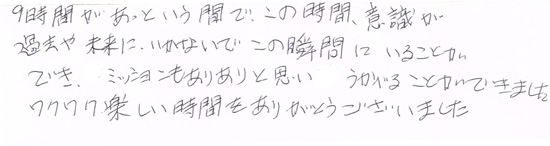 9時間があっという間で、この時間、意識が
過去や未来に、いかないでこの瞬間にいることが
でき、ミッションもありありと思いうかべることができました
ワクワク楽しい時間をありがとうございました